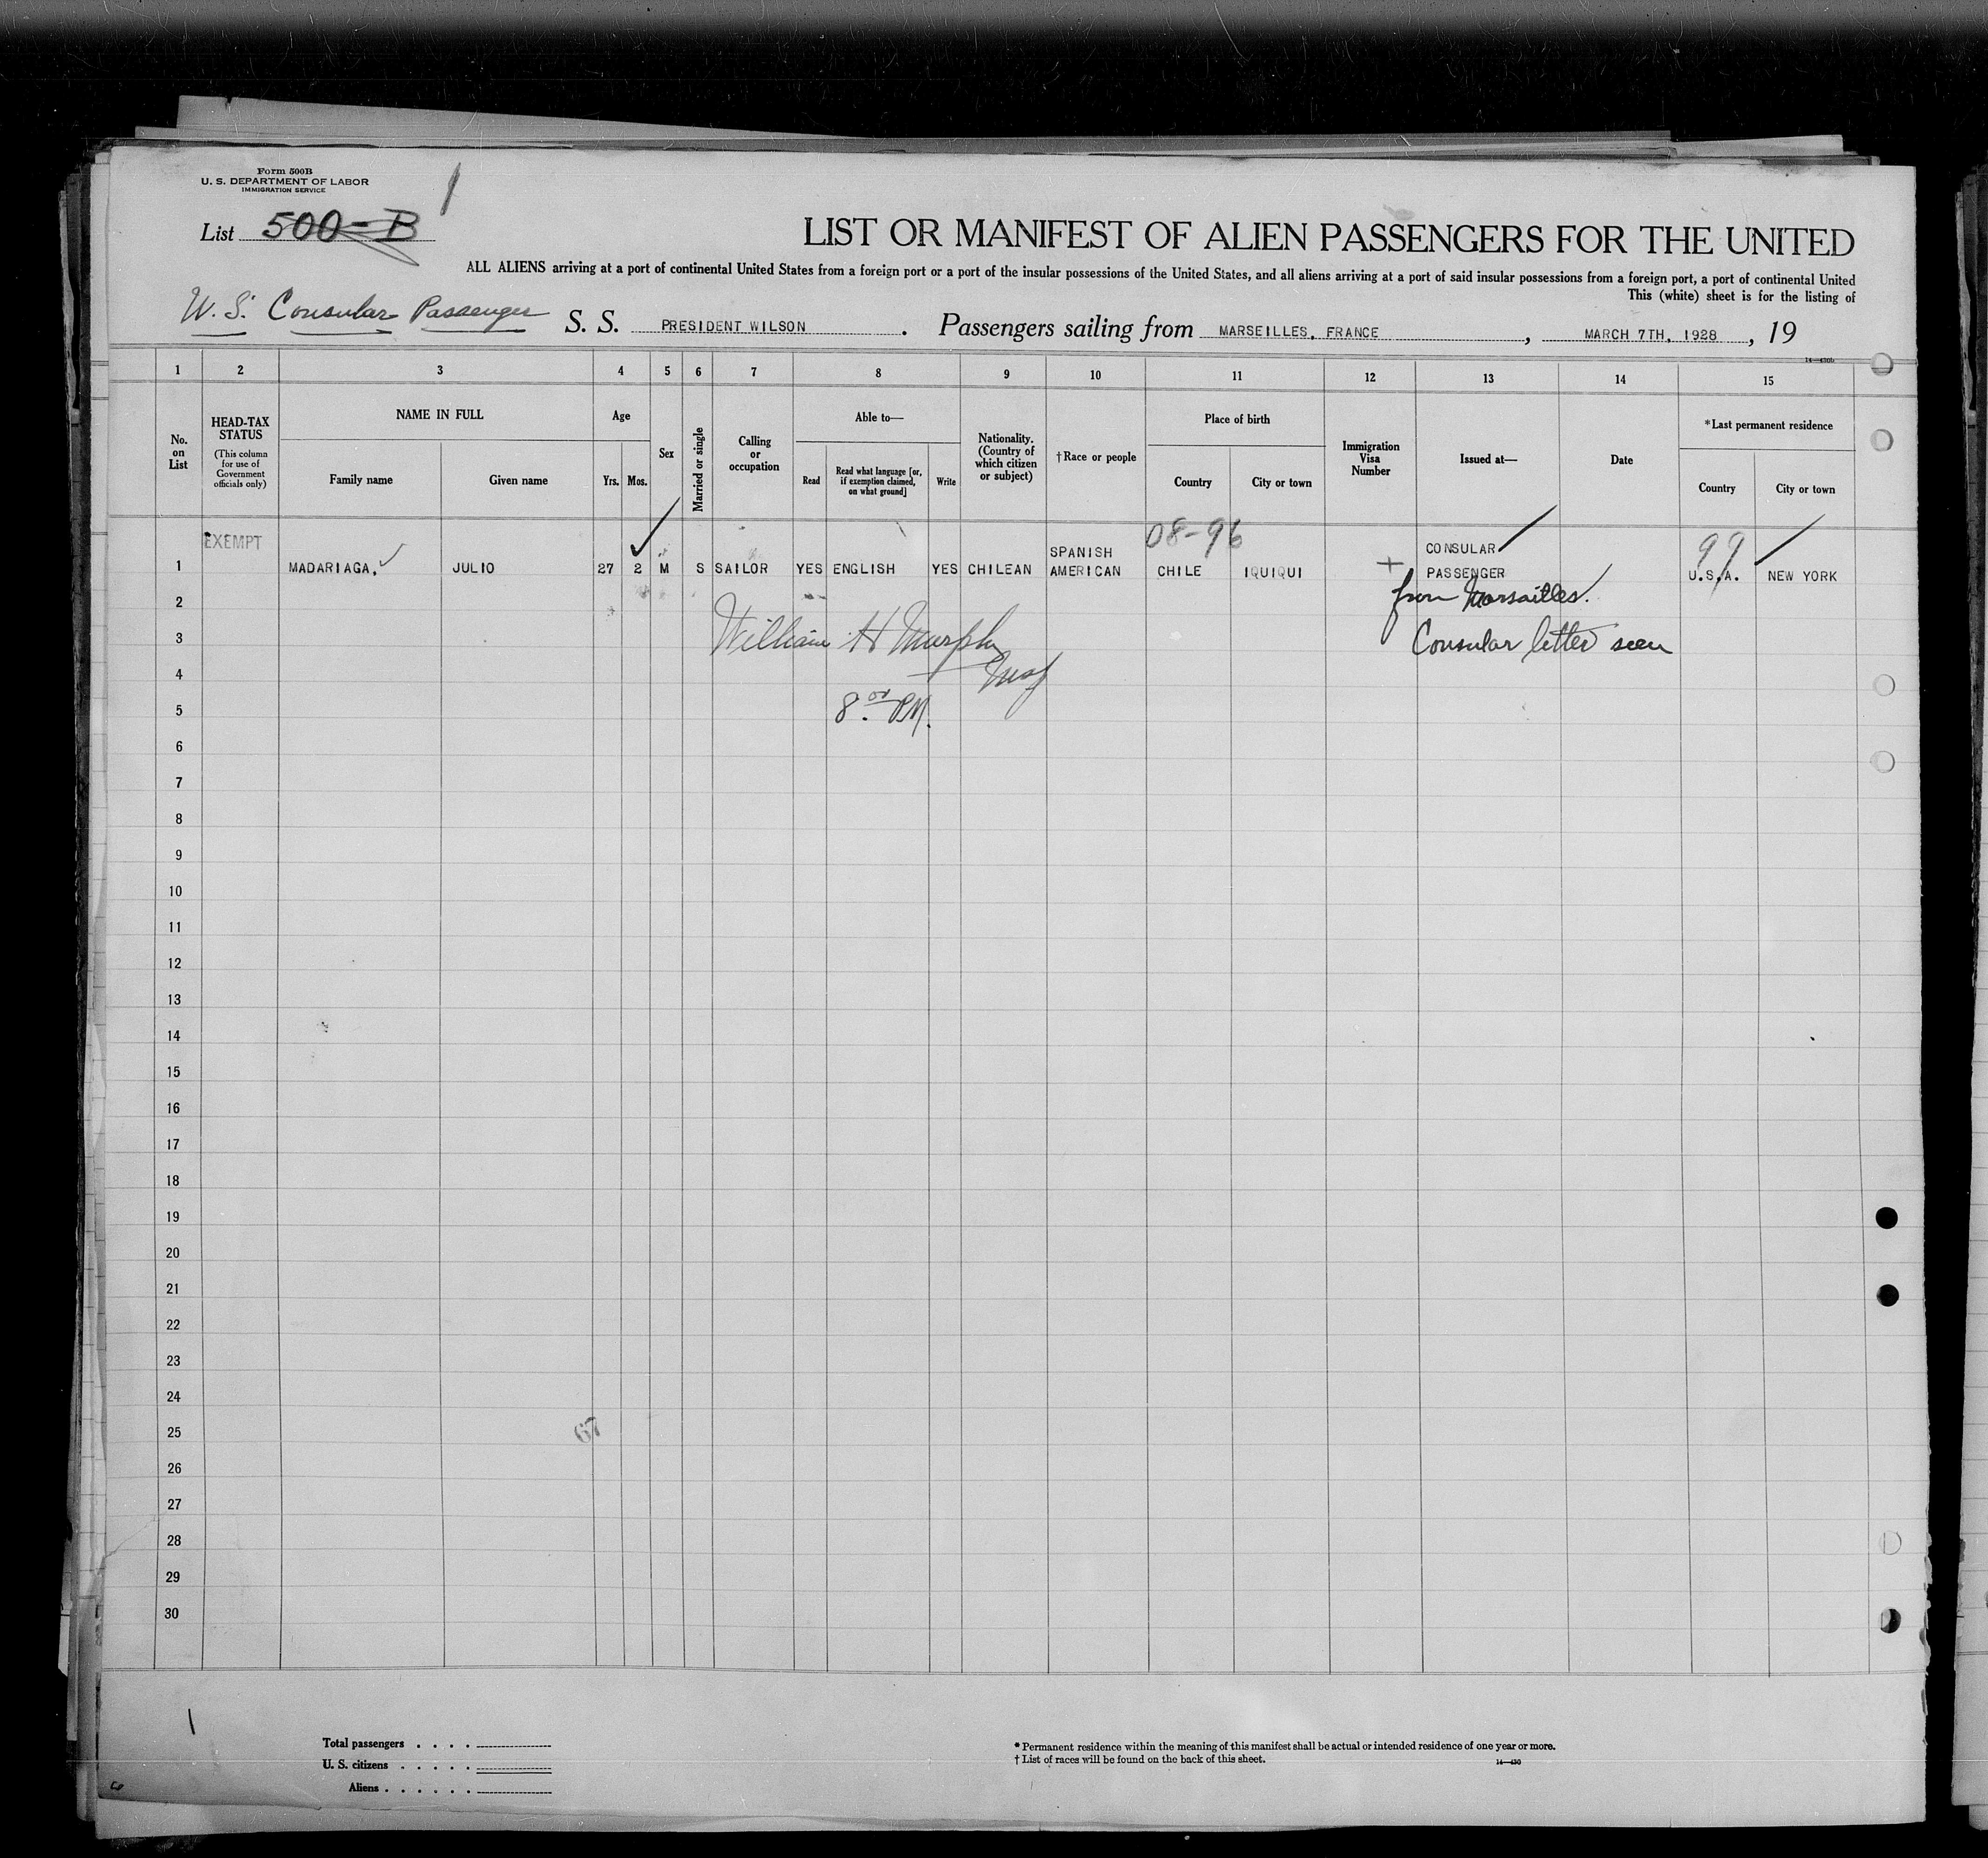 Form 500B
U. S. DEPARTMENT OF LABOR
IMMIGRATION SERVICE
1
List 500-B
LIST OR MANIFEST OF ALIEN PASSENGERS FOR THE UNITED
ALL ALIENS arriving at a port of continental United States from a foreign port or a port of the insular possessions of the United States, and all aliens arriving at a port of said insular possessions from a foreign port, a port of continental United
This (white) sheet is for the listing of
U. S. Consular Passenger S. S. PRESIDENT WILSON . Passengers sailing from MARSEILLES, FRANCE , MARCH 7TH, 1928 , 19
1 2 3 4 5 6 7 8 9 10 11 12 13 14 15
No. on List
HEAD-TAX STATUS
(This column for use of Government officials only)
NAME IN FULL
Family name
Given name
Age
Yrs.
Mos.
Sex
Married or single
Calling or occupation
Able to—
Read
Read what language [or, if exemption claimed, on what ground]
Write
Nationality. (Country of which citizen or subject)
†Race or people
Place of birth
Country
City or town
Immigration Visa Number
Issued at—
Date
*Last permanent residence
Country
City or town
EXEMPT
08-96
99
1 MADARIAGA, JULIO 27 2 M S SAILOR YES ENGLISH YES CHILEAN SPANISH AMERICAN CHILE IQUIQUI + CONSULAR PASSENGER U.S.A. NEW YORK
from Marsailles.
2
William H Murphy
Consular letter seen
3
4
8 00 PM.
5
6
7
8
9
10
11
12
13
14
15
16
17
18
19
20
21
22
23
24
25
67
26
27
28
29
30
1
Total passengers . . . .
U. S. citizens . . . . .
Aliens . . . . . .
* Permanent residence within the meaning of this manifest shall be actual or intended residence of one year or more.
† List of races will be found on the back of this sheet.
14—430